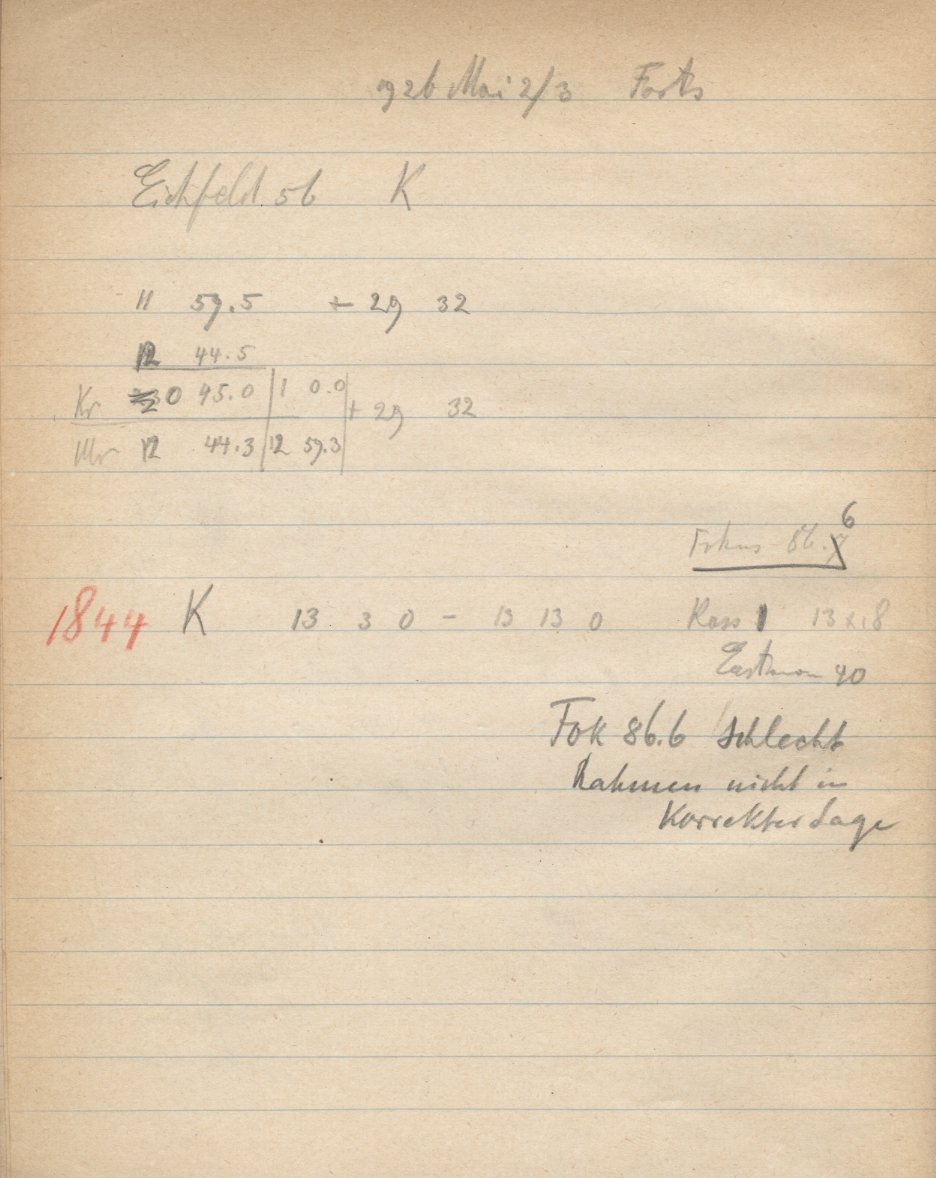 1926 Mai 2/3 Forts
Eichfeld 56 K
11 59.5 + 29 32
12 44.5
Kr 0 45.0 1 0.0 + 29 32
Uhr 12 44.3 12 59.3
Fokus 86.7 6
1844 K 13 3 0 - 13 13 0 Kass 1 13x18
Eastman 40
Fok 86.6 schlecht
Rahmen nicht in
Korrekter Lage